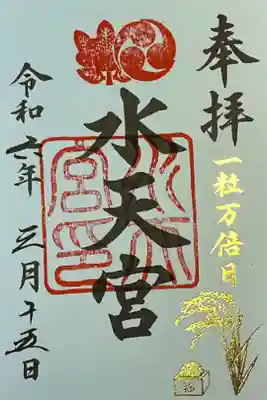 奉拝
一粒万倍日
水天宮
水天
宮印
令和六年 三月十五日